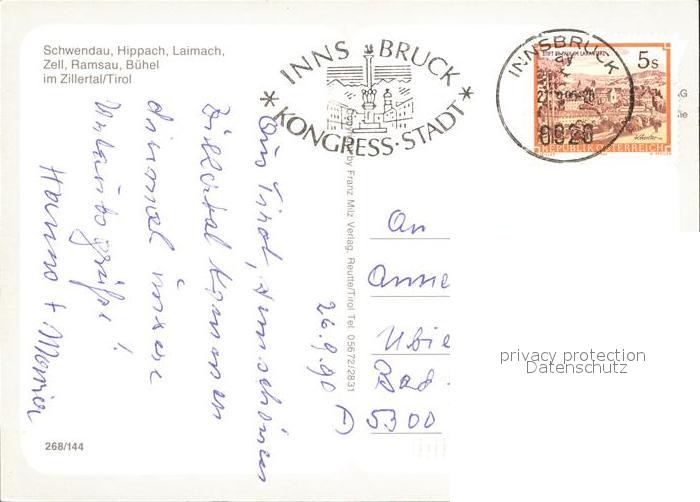 Schwendau, Hippach, Laimach,
Zell, Ramsau, Bühel
im Zillertal/Tirol
INNSBRUCK
* KONGRESS-STADT *
INNSBRUCK
6020
5 S
STIFT ST. PAUL IM LAVANTTAL
REPUBLIK ÖSTERREICH
by Franz Milz Verlag, Reutte/Tirol Tel. 05672/2831
26.9.90
Aus Tirol, dem schönen
Zillertal kommen
diesmal unsere
Urlaubsgrüße!
Hanno + Maria
An
Anne
Ubie
Bad
D 5300
privacy protection
Datenschutz
268/144